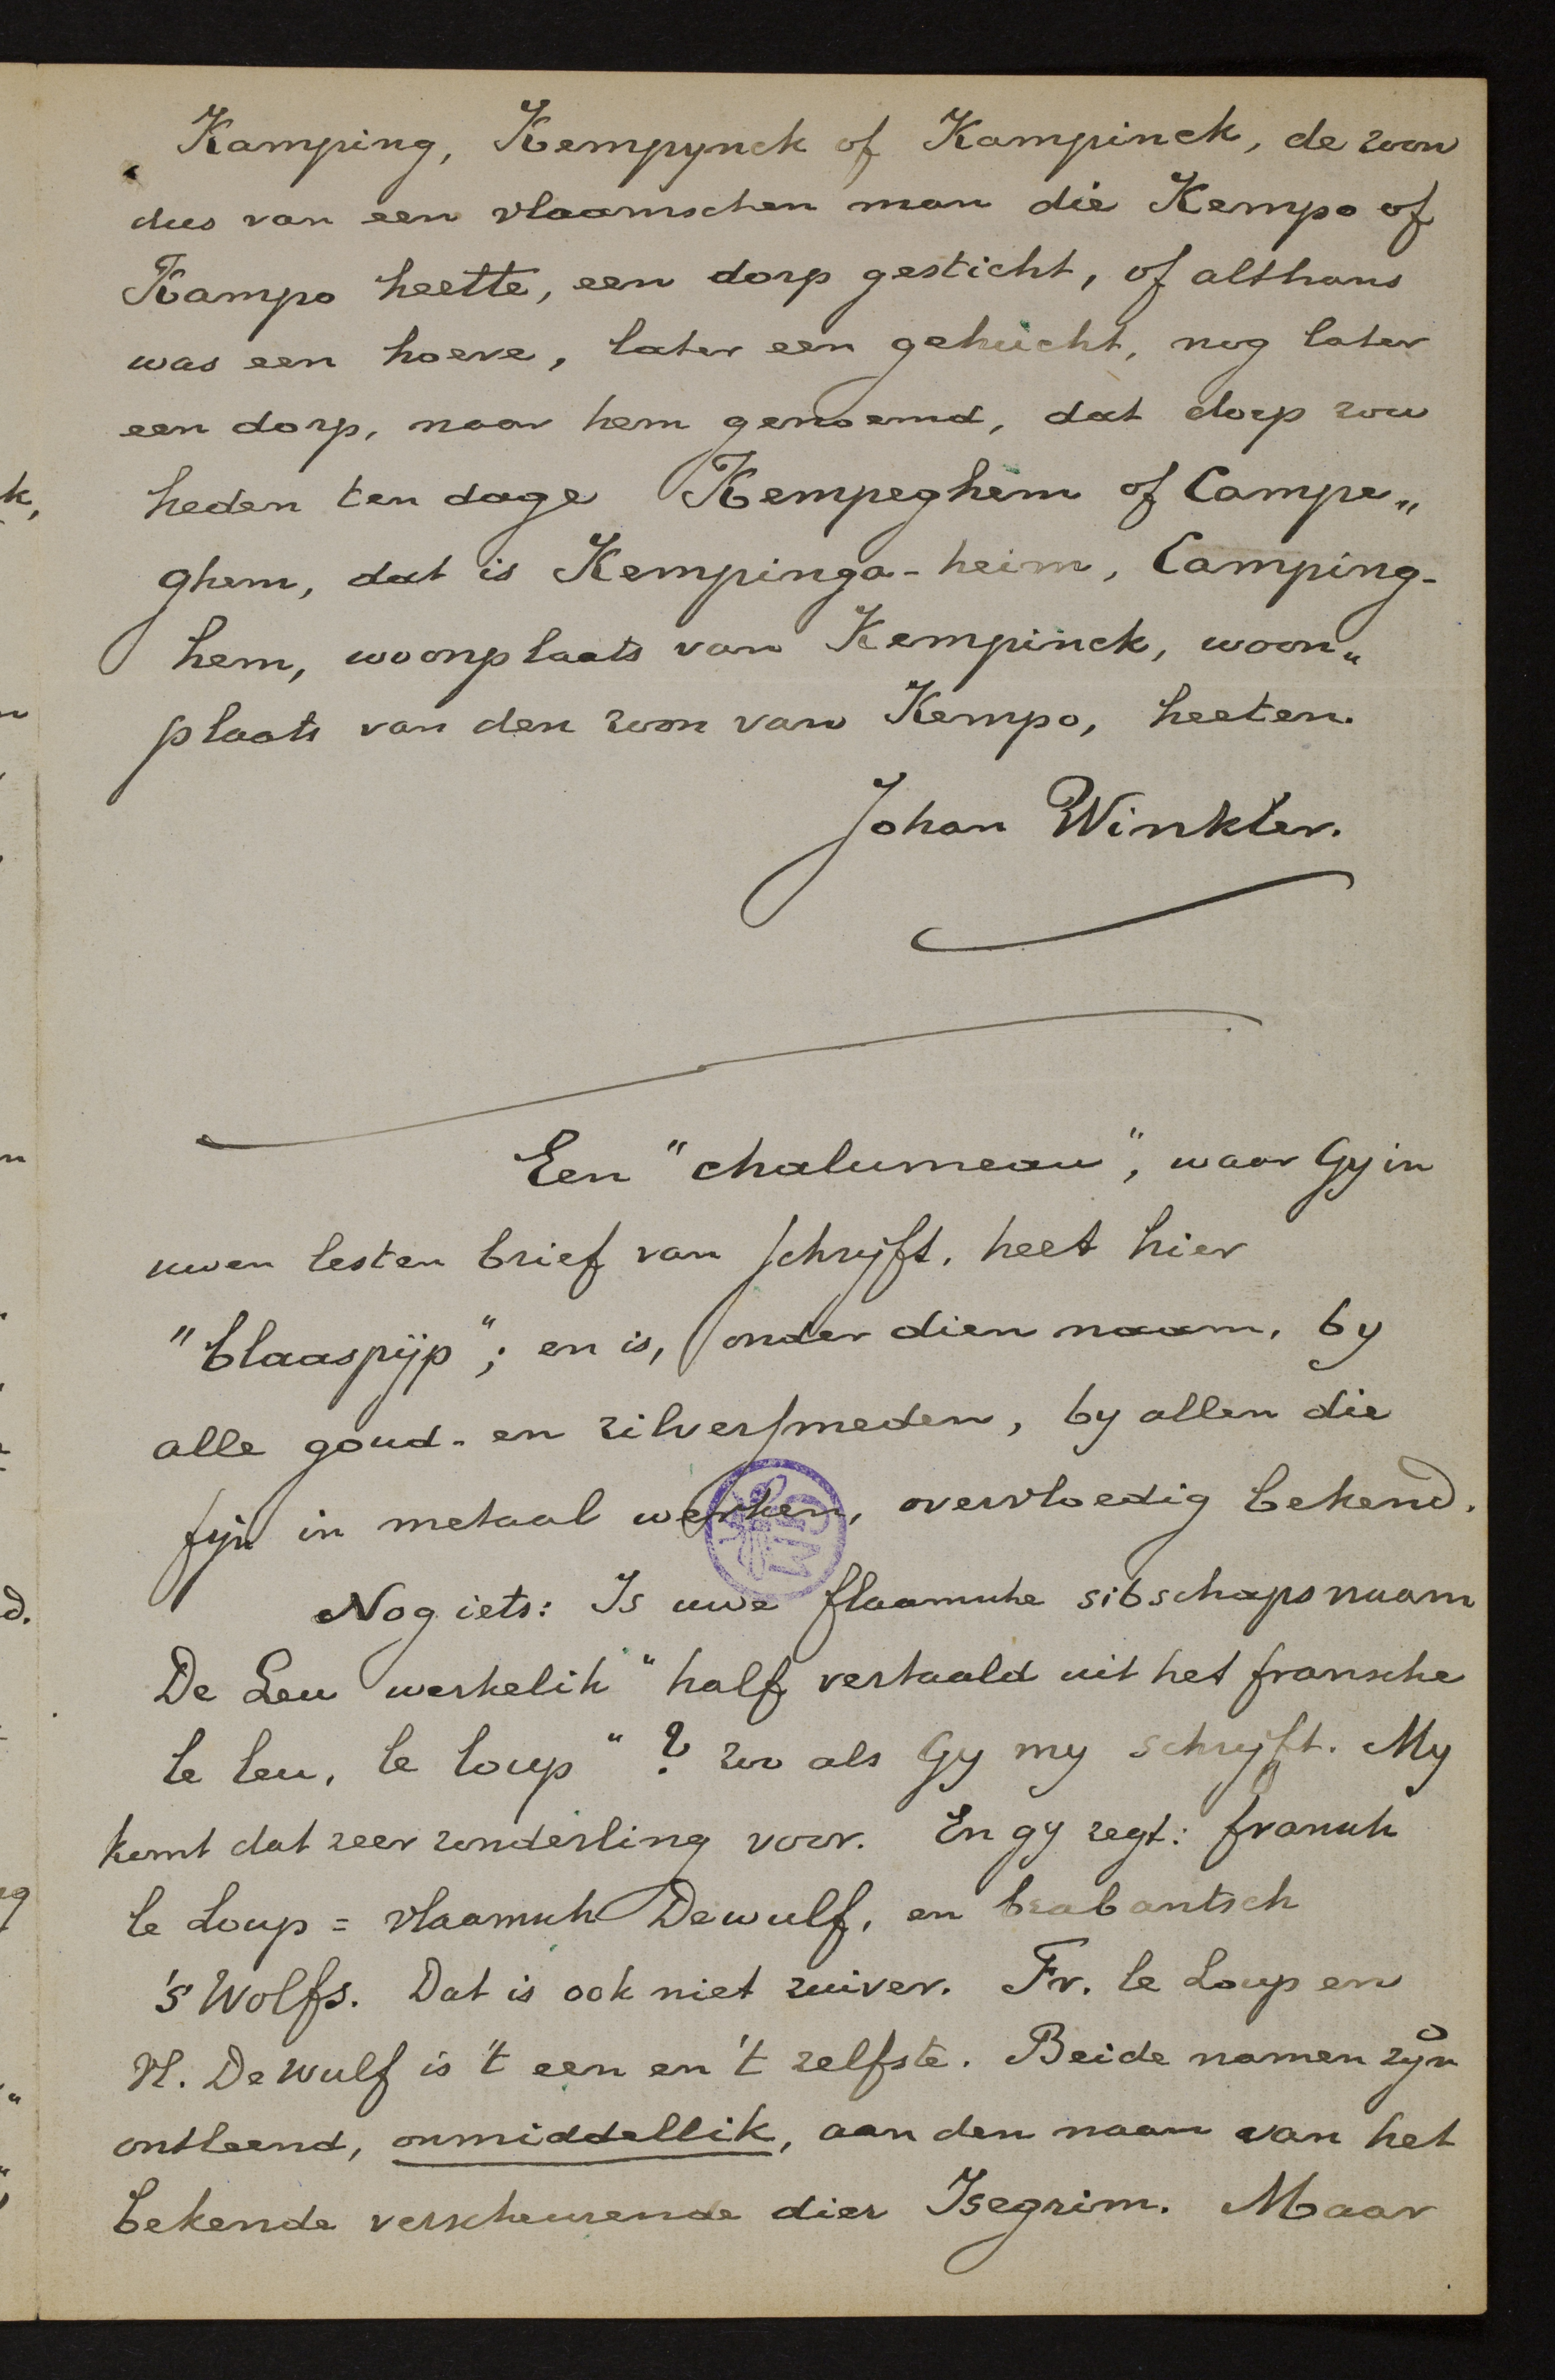 Kamping, Kempynck of Kampinck, de zoon
dus van een vlaamschen man die Kempo of
Kampo heette, een dorp gesticht, of althans
was een hoeve, later een gehucht, nog later
een dorp, naar hem genoemd, dat dorp zou
heden ten dage Kempeghem of Campe„
ghem, dat is Kempinga-heim, Camping-
hem, woonplaats van Kempinck, woon„
plaats van den zoon van Kempo, heeten.
Johan Winkler.
Een "chalumeau", waar Gy in
uwen lesten brief van schryft, heet hier
"blaaspijp"; en is, onder dien naam, by
alle goud- en zilversmeden, by allen die
fijn in metaal werken, overvloedig bekend.
Nog iets: Is uwe flaamsche sibschapsnaam
De Leu werkelik "half vertaald uit het fransche
le leu, le loup"? zoo als Gy my schryft. My
komt dat zeer zonderling voor. En gy zegt: fransch
le Loup = vlaamsch Dewulf, en brabantsch
's Wolfs. Dat is ook niet zuiver. Fr. le Loup en
Vl. De Wulf is 't een en 't zelfste. Beide namen zyn
ontleend, onmiddellik, aan den naam van het
bekende verscheurende dier Isegrim. Maar